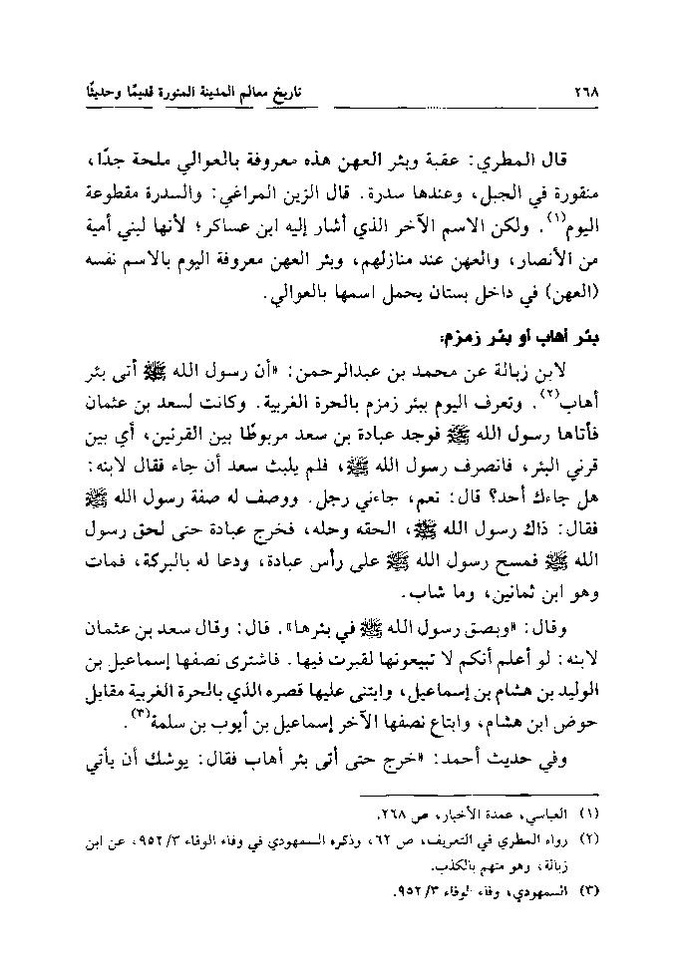 ٢٦٨ تاريخ معالم المدينة المنورة قديمًا وحديثًا
قال المطري: عقبة وبئر العهن هذه معروفة بالعوالي ملحة جدًا،
منقورة في الجبل، وعندها سدرة. قال الزين المراغي: والسدرة مقطوعة
اليوم(١). ولكن الاسم الآخر الذي أشار إليه ابن عساكر؛ لأنها لبني أمية
من الأنصار، والعهن عند منازلهم، وبئر العهن معروفة اليوم بالاسم نفسه
(العهن) في داخل بستان يحمل اسمها بالعوالي.
بئر أهاب أو بئر زمزم:
لابن زبالة عن محمد بن عبدالرحمن: «أن رسول الله ﷺ أتى بئر
أهاب(٢). وتعرف اليوم ببئر زمزم بالحرة الغربية. وكانت لسعد بن عثمان
فأتاها رسول الله ﷺ فوجد عبادة بن سعد مربوطًا بين القرنين، أي بين
قرني البئر، فانصرف رسول الله ﷺ، فلم يلبث سعد أن جاء فقال لابنه:
هل جاءك أحد؟ قال: نعم، جاءني رجل. ووصف له صفة رسول الله ﷺ
فقال: ذاك رسول الله ﷺ، الحقه وحله، فخرج عبادة حتى لحق رسول
الله ﷺ فمسح رسول الله ﷺ على رأس عبادة، ودعا له بالبركة، فمات
وهو ابن ثمانين، وما شاب.
وقال: «وبصق رسول الله ﷺ في بئرها». قال: وقال سعد بن عثمان
لابنه: لو أعلم أنكم لا تبيعونها لقبرت فيها. فاشترى نصفها إسماعيل بن
الوليد بن هشام بن إسماعيل، وابتنى عليها قصره الذي بالحرة الغربية مقابل
حوض ابن هشام، وابتاع نصفها الآخر إسماعيل بن أيوب بن سلمة(٣).
وفي حديث أحمد: «خرج حتى أتى بئر أهاب فقال: يوشك أن يأتي
(١) العباسي، عمدة الأخبار، ص ٢٦٨.
(٢) رواه المطري في التعريف، ص ٦٢، وذكره السمهودي في وفاء الوفاء ٩٥٢/٣، عن ابن
زبالة، وهو متهم بالكذب.
(٣) السمهودي، وفاء الوفاء ٩٥٢/٣.